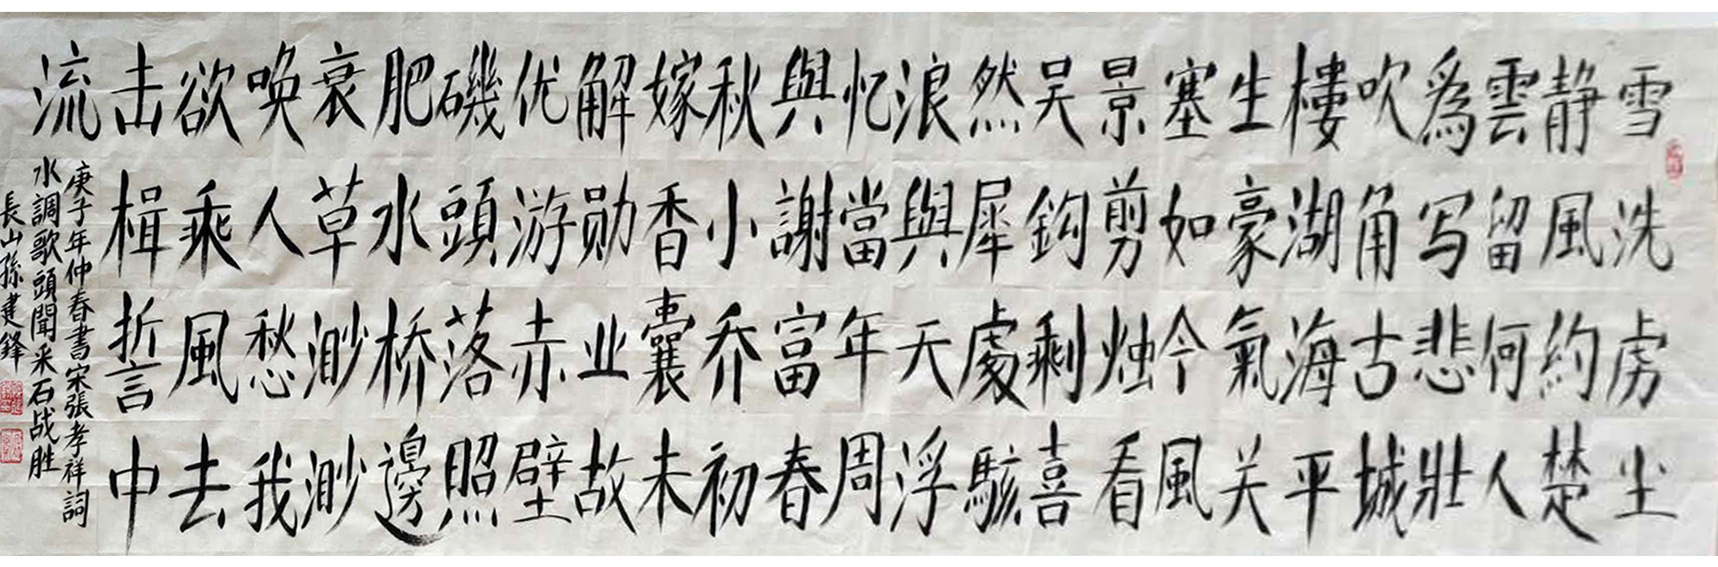 雪洗虏尘
静風約楚
雲留何人
爲写悲壯
吹角古城
樓湖海平
生豪氣关
塞如今風
景剪烛看
吴鈎剩喜
然犀處駭
浪與天浮
忆當年周
與謝富春
秋小乔初
嫁香囊未
解勋业故
优游赤壁
磯頭落照
肥水桥邊
衰草渺渺
唤人愁我
欲乘風去
击楫誓中
流
庚子年仲春書宋張孝祥詞
水調歌頭聞采石战胜
長山孫建鋒